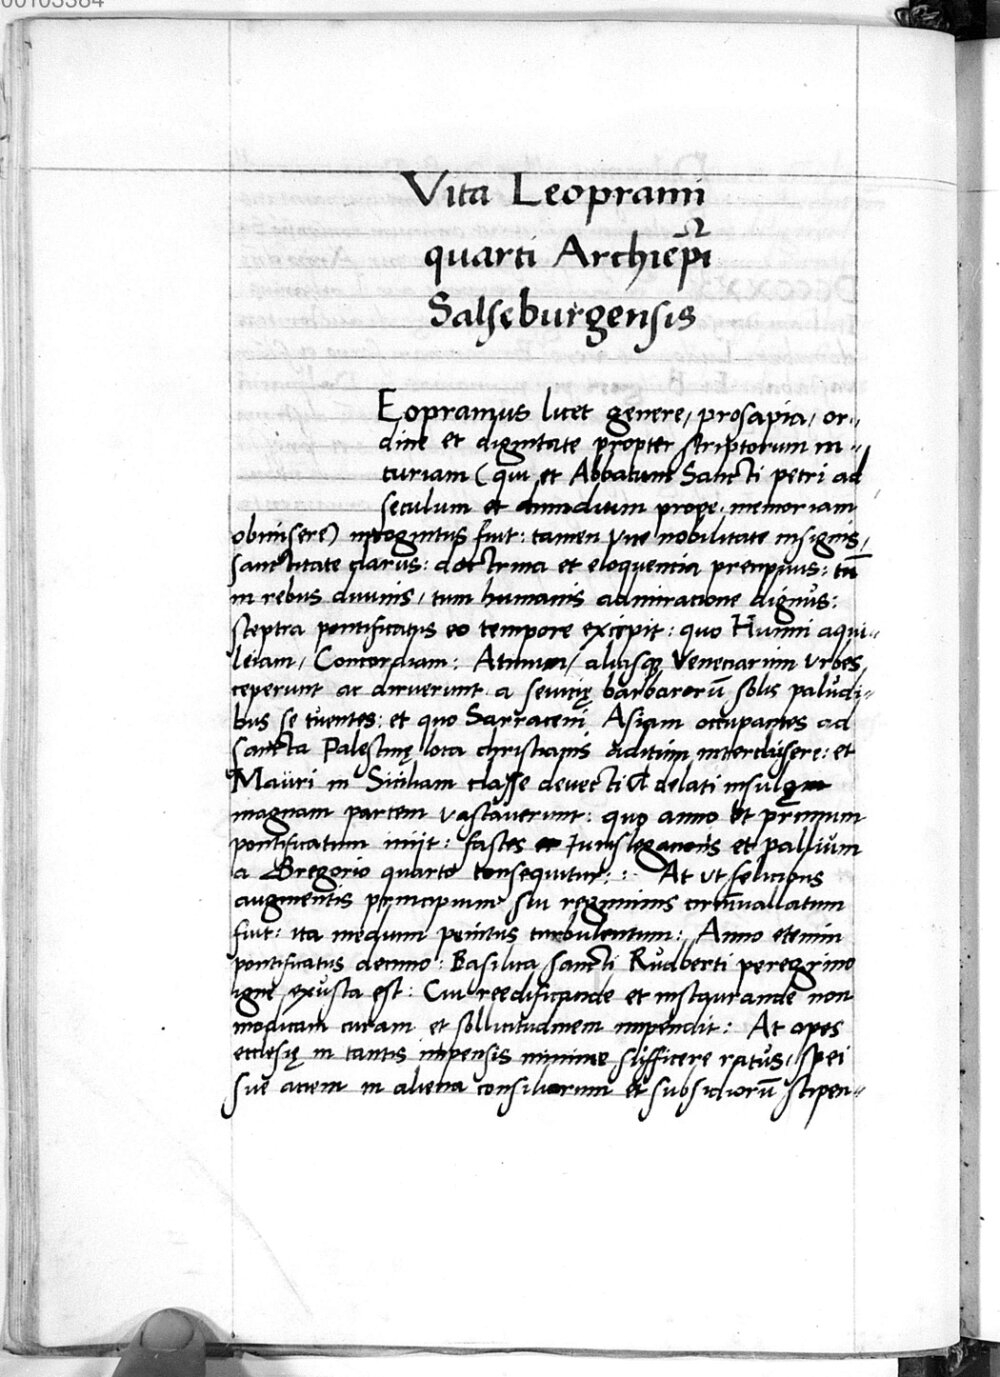 00103384
Vita Leoprami
quarti Archiep̃i
Salseburgensis
Eopramus licet genere, prosapia, or-
dine et dignitate propter scriptorum in-
curiam (qui et Abbatum Sancti petri ad
seculum et dimidium prope memoriam
obmisere) incognitus fuit: tamen vite nobilitate insignis,
sanctitate clarus: doctrina et eloquencia precipuus: tũ
in rebus divinis, tum humanis admiracione dignus:
sceptra pontificatus eo tempore excipit: quo Hunni aqui-
leiam, Concordiam: Altinum, aliasque Veneciarum vrbes
ceperunt ac diruerunt a sevicię barbarorũ solis paludi-
bus se tuentes: et quo Sarraceni Asiam occupantes ad
sancta Palestinę loca christianis aditum interclusere: et
Mauri in Siciliam classe devecti delati insulam
magnam partem vastaverunt: quo anno et primum
pontificatum iniit: fastes et Iuris legationis et pallium
a Gregorio quarto consequitur: At vt felicioris
augmentis principium sui regiminis circumvallatum
fuit: ita medium penitus turbulentum: Anno etenim
pontificatus decimo: Basilica sancti Rudberti peregrino
igne exusta est: Cui reedificande et instaurande non
modicam curam et sollicitudinem impendit: At opes
ecclesię in tantis inpensis minime sufficere ratus, spei
sue aciem in aliena consiliorum et subsidiorũ stipen-